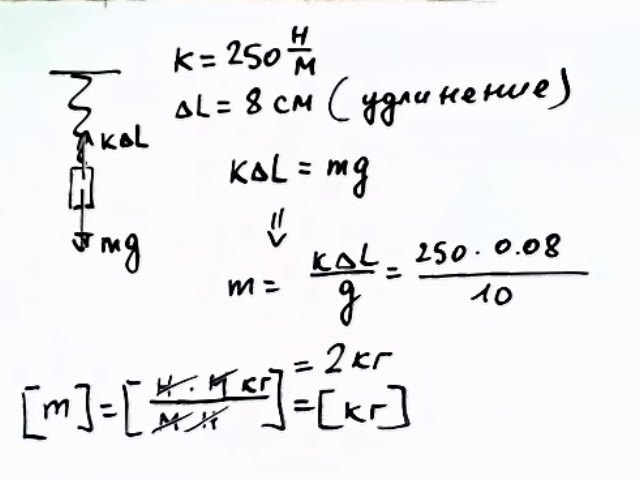 K = 250 Н/М
ΔL = 8 см (удлинение)
KΔL
KΔL = mg
mg
⇓
m = KΔL/g = 250 · 0.08/10
= 2 кг
[m] = [Н · М кг/М Н] = [кг]